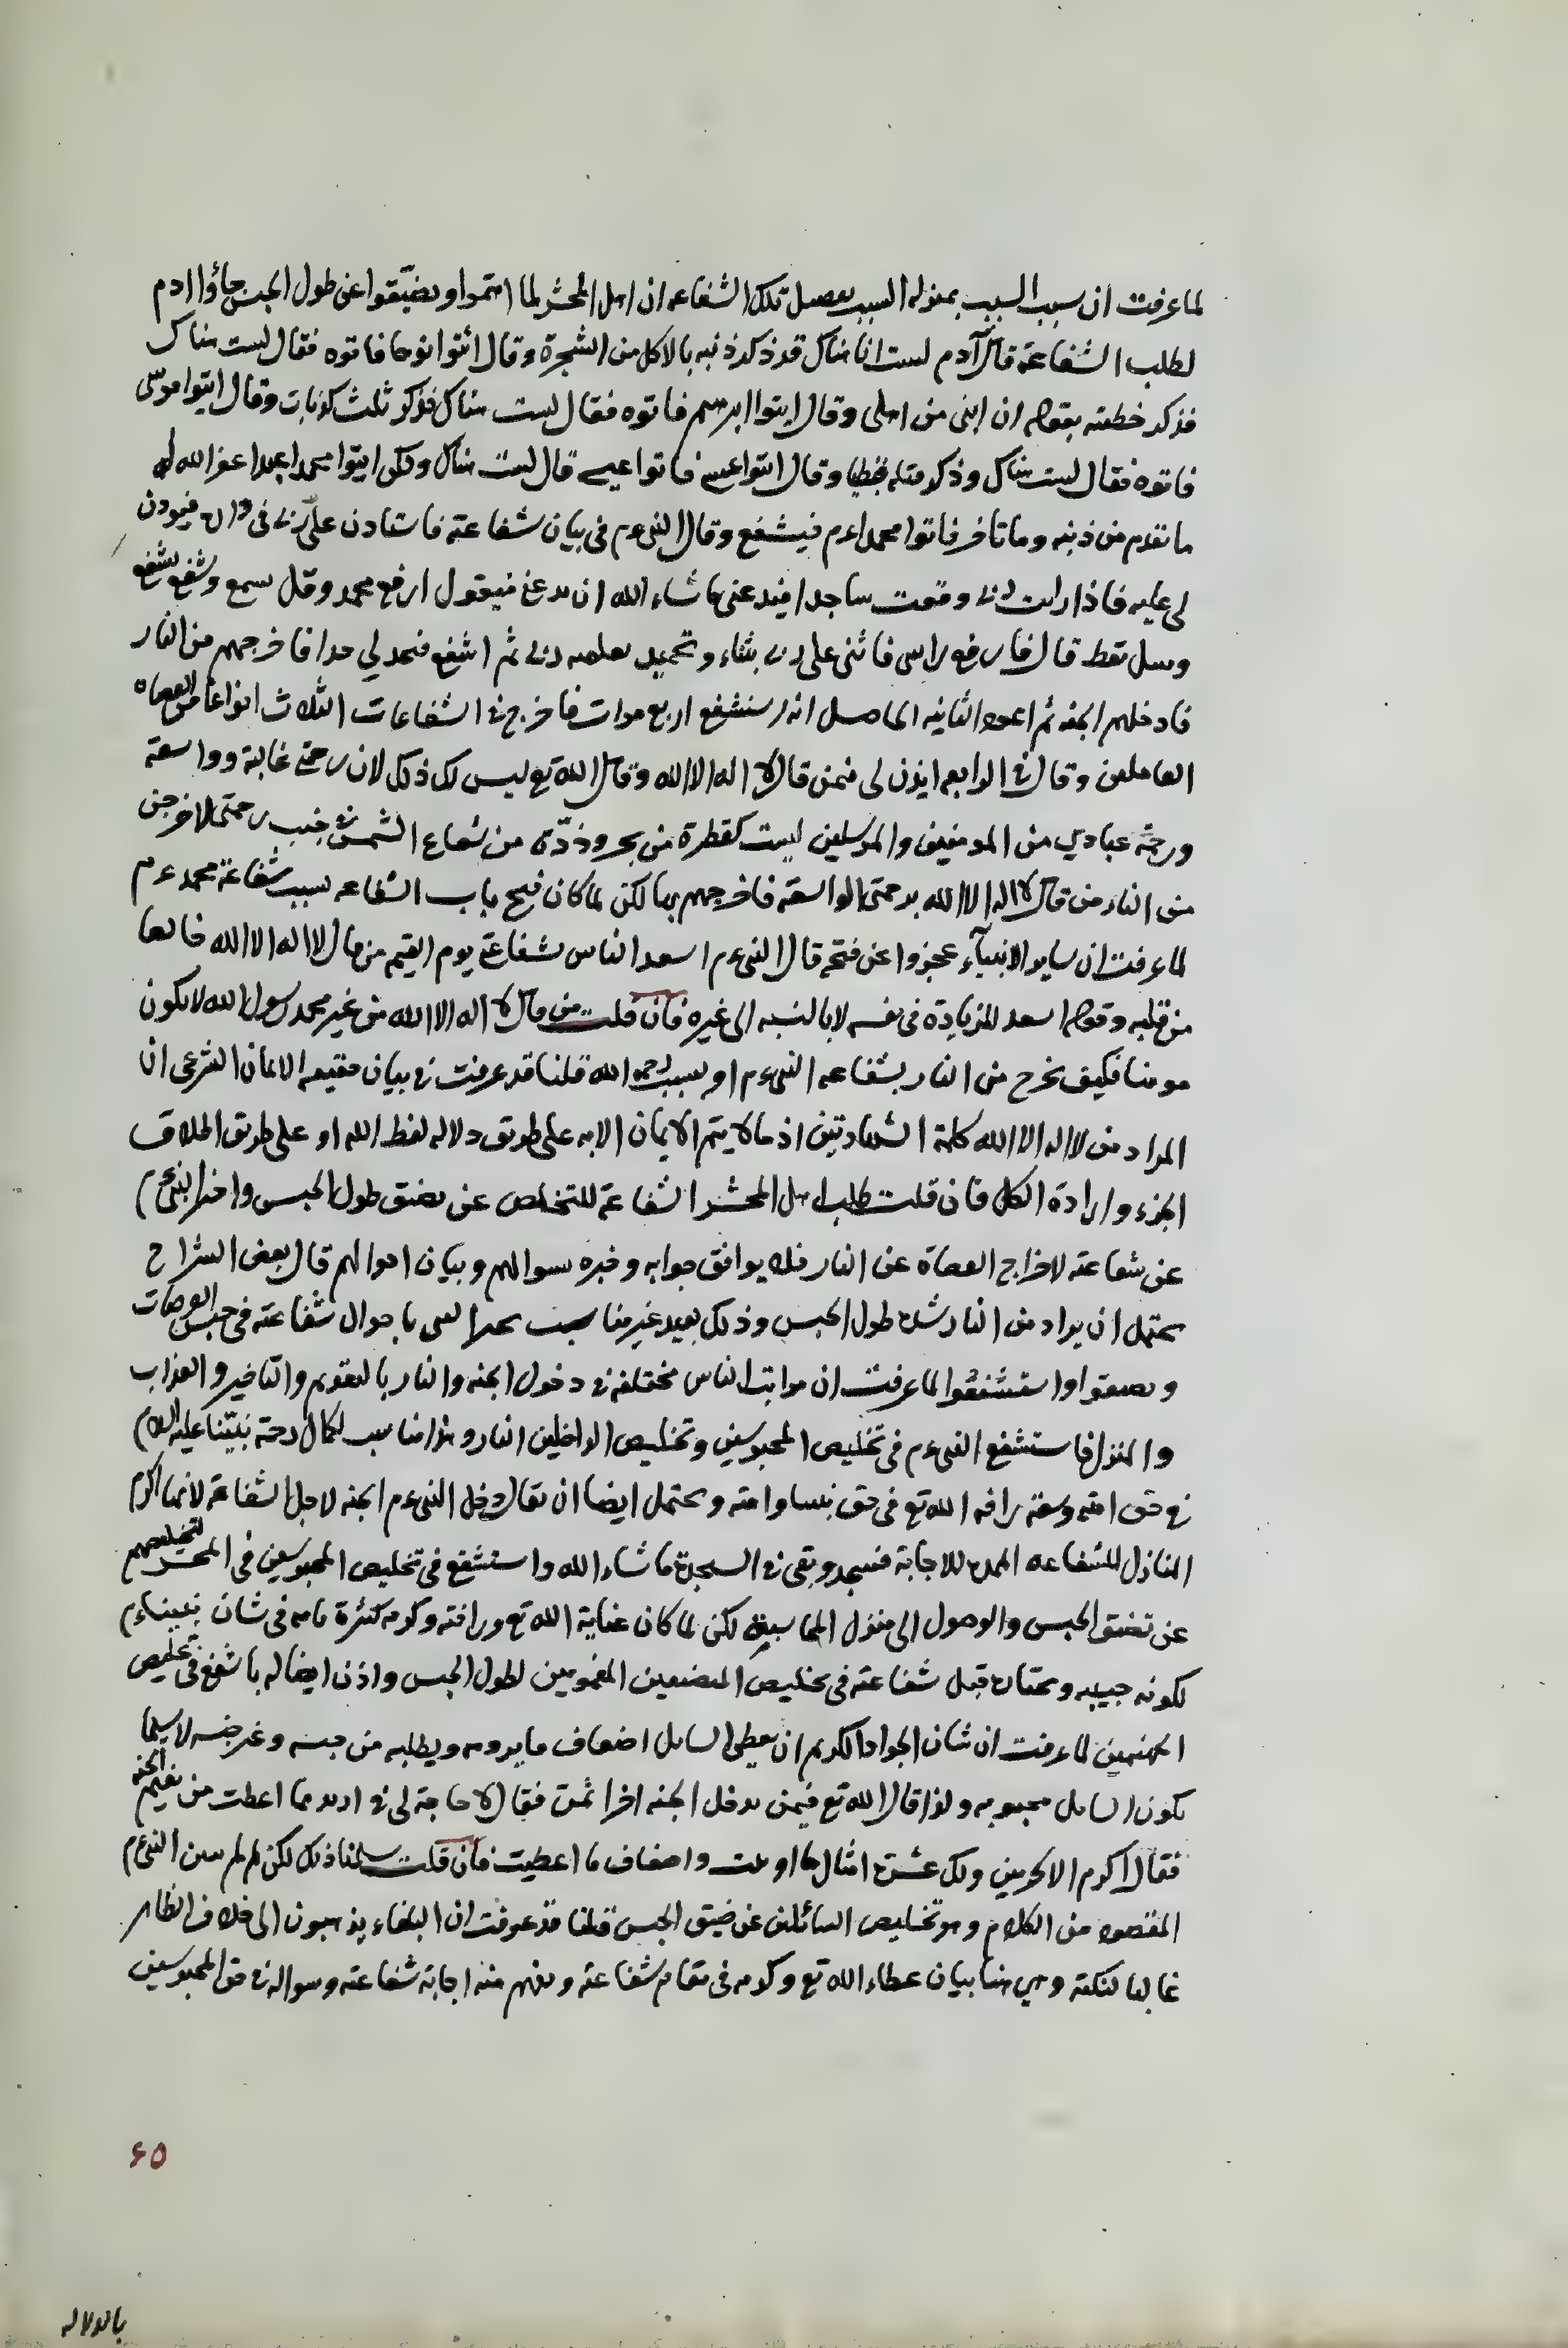 لما عرفت ان سبب السبب بمنزلة السبب تفصيل تلك الشفاعه ان اهل المحشر لما اهتموا وتضيّقوا عن طول الحبس جاؤا ادم
لطلب الشفاعة قال آدم لست انا هناك قد ذكر ذنبه بالاكل من الشجرة وقال ائتوا نوحا فاتوه فقال لست هناك
فذكر خطئته بقوله ان ابنى من اهلى وقال ايتوا ابرهيم فاتوه فقال لست هناك فذكر ثلث كذبات وقال ايتوا موسى
فاتوه فقال لست هناك وذكر قتله خطيا وقال ايتوا عيسى فاتوا عيسى قال لست هناك ولكن ايتوا محمدا عبدا غفر الله له
ما تقدم من ذنبه وما تأخر فاتوا محمدا عم فيشفع وقال النبى عم فى بيان شفاعته فاستاذن على ربى فى داره فيوذن
لى عليه فاذا رايت ربى وقعت ساجدا فيدعنى ما شاء الله ان يدعنى فيقول ارفع محمد وقل يسمع واشفع تشفع
وسل تعط قال فارفع راسى فاثنى على ربى بثناء وتحميد يعلمه ربى ثم اشفع فيحد لي حدا فاخرجهم من النار
فادخلهم الجنه ثم اعود الثانيه الحاصل انه استشفع اربع مرات فاخرج فى الشفاعات الثلاث انواعا من العصاه
العاملين وقال فى الرابعه ايذن لى فيمن قال لا اله الا الله وقال الله تع ليس لك ذلك لان رحمتى غالبة وواسعة
ورحمة عبادي من المومنين والمرسلين ليست كقطرة من بحر وذرّة من شعاع الشمس فى جنب رحمتى لاخرجن
من النار من قال لا اله الا الله برحمتى الواسعة فاخرجهم بها لكن لما كان فتح باب الشفاعه بسبب شفاعة محمد عم
لما عرفت ان ساير الانبيآء عجزوا عن فتحه قال النبى عم اسعد الناس بشفاعتى يوم القيمه من قال لا اله الا الله خالصا
من قلبه وقوله اسعد للزيادة فى نفسه لا بالنسبه الى غيره فان قلت من قال لا اله الا الله من غير محمد رسول الله لا يكون
مومنا فكيف يخرج من النار بشفاعه النبى عم او بسبب رحمة الله قلنا قد عرفت فى بيان حقيقه الايمان الشرعى ان
المراد من لا اله الا الله كلمة الشهادتين اذ ما لا يتم الايمان الا به على طريق دلاله لفظ الله او على طريق اطلاق
الجزء وارادة الكل فان قلت طلب اهل المحشر الشفاعة للتخلص عن تضيق طول الحبس واخبر النبى عم
عن شفاعته لاخراج العصاة عن النار فلا يوافق جوابه وخبره سوالهم وبيان احوالهم قال بعض الشراح
يحتمل ان يراد من النار شدة طول الحبس وذلك بعيد غير مناسب باحوال شفاعته فى حبس العرصات
واستشفعوا لما عرفت ان مراتب الناس مختلفه فى دخول الجنه والنار بالتقديم والتاخير والعذاب
والمنزل فاستشفع النبى عم فى تخليص المحبوسين وتخليص الداخلين النار وهذا مناسب لكمال رحمة نبيّنا عليه السلام
فى حق امته وسعة رافه الله تع فى حق نبينا وامته ويحتمل ايضا ان يقال دخل النبى عم الجنه لاجل الشفاعة لانها اكرم
المنازل للشفاعه للاجابة فسجد وبقى فى السجدة ما شاء الله واستشفع فى تخليص المحبوسين فى المحشر لتخليصهم
عن تضيق الحبس والوصول الى منزل المحاسبة لكن لما كان عناية الله تع ورافته وكرمه كثرة تامه فى شان نبينا عم
لكونه حبيبه ومختاره قبل شفاعته فى تخليص المغمومين لطول الحبس واذن ايضا له بالشفع فى تخليص
الجهنميين لما عرفت ان شان الجواد الكريم ان يعطى السايل اضعاف ما يرومه ويطلبه من جنسه وغير جنسه لا سيما
يكون السايل محبوبه ولذا قال الله تع فيمن يدخل الجنه اخرا تمن فقال لا حاجة لى فى ازيد مما اعطيت من نعيم الجنه
فقال اكرم الاكرمين ولك عشرة امثالها واضعاف ما اعطيت فان قلت سلمنا ذلك لكن لم لم يبين النبى عم
المقصود من الكلام وهو تخليص السائلين عن ضيق الحبس قلنا قد عرفت ان البلغاء يذهبون الى خلاف الظاهر
غالبا لنكتة وهي هنا بيان عطاء الله تع وكرمه فى مقام شفاعته ويفهم منه اجابة شفاعته وسواله فى حق المحبوسين
٦٥
بالدلاله